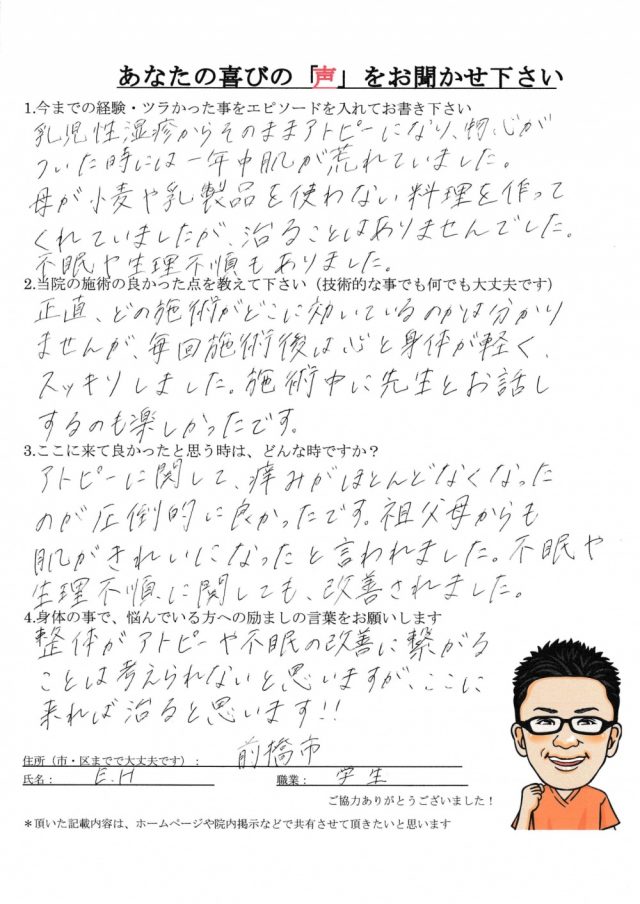 あなたの喜びの「声」をお聞かせ下さい
1.今までの経験・ツラかった事をエピソードを入れてお書き下さい
乳児性湿疹からそのままアトピーになり、物心が
ついた時には一年中肌が荒れていました。
母が小麦や乳製品を使わない料理を作って
くれていましたが、治ることはありませんでした。
不眠や生理不順もありました。
2.当院の施術の良かった点を教えて下さい（技術的な事でも何でも大丈夫です）
正直、どの施術がどこに効いているのかは分かり
ませんが、毎回施術後は心と身体が軽く、
スッキリしました。施術中に先生とお話し
するのも楽しかったです。
3.ここに来て良かったと思う時は、どんな時ですか？
アトピーに関して、痒みがほとんどなくなった
のが圧倒的に良かったです。祖父母からも
肌がきれいになったと言われました。不眠や
生理不順に関しても、改善されました。
4.身体の事で、悩んでいる方への励ましの言葉をお願いします
整体がアトピーや不眠の改善に繋がる
ことは考えられないと思いますが、ここに
来れば治ると思います!!
住所（市・区までで大丈夫です）： 前橋市
氏名： E.H 職業： 学生
ご協力ありがとうございました！
＊頂いた記載内容は、ホームページや院内掲示などで共有させて頂きたいと思います